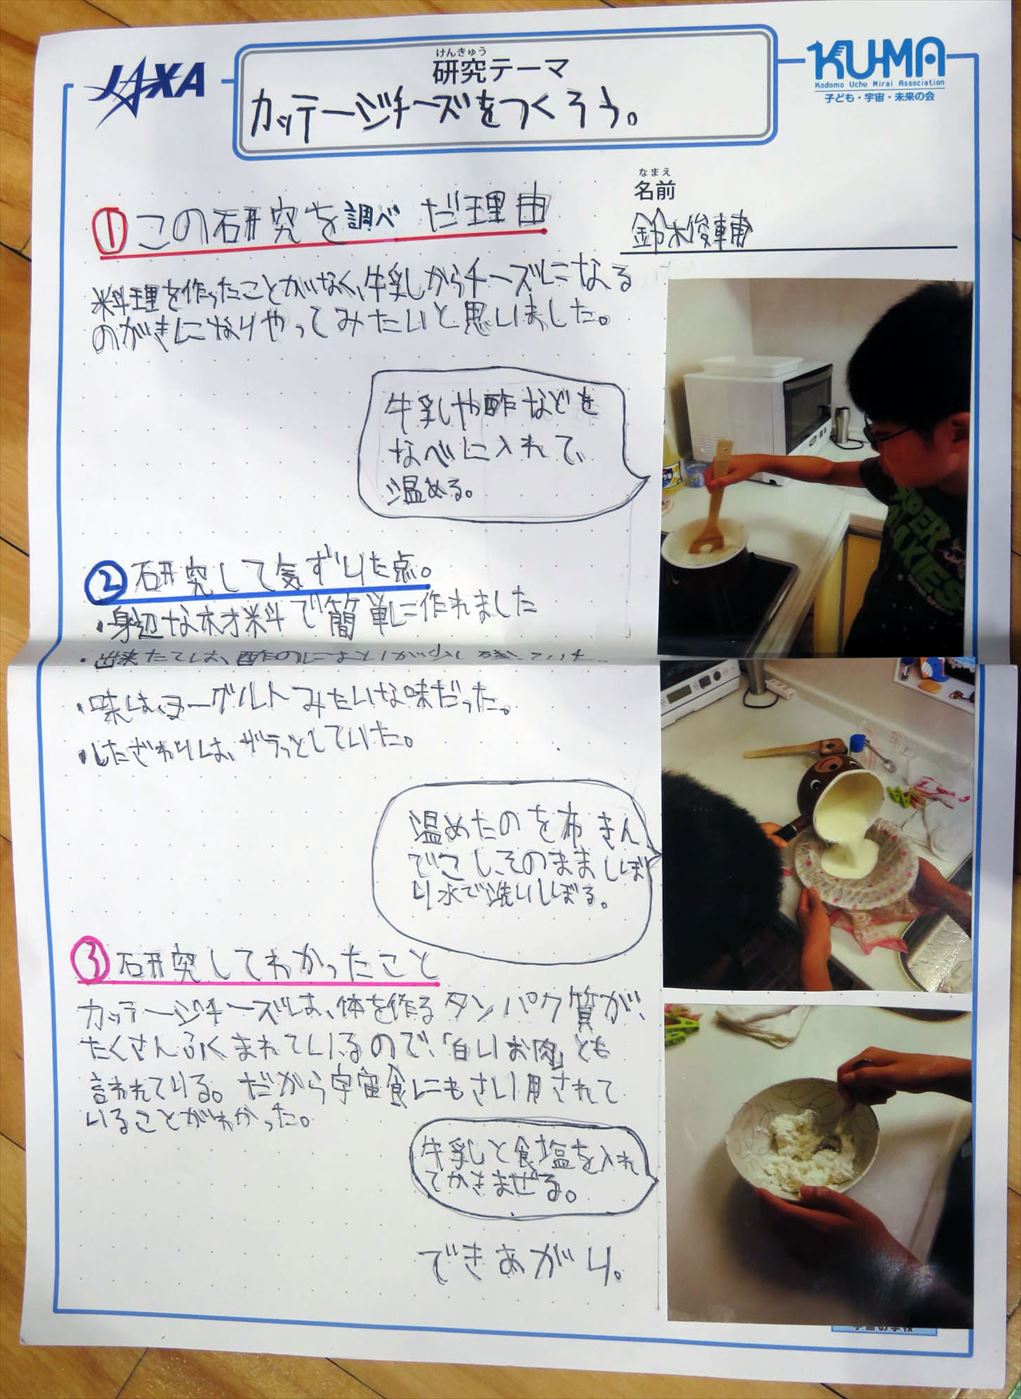 JAXA
けんきゅう
研究テーマ
カッテージチーズをつくろう。
KU-MA
Kodomo Uchu Mirai Association
子ども・宇宙・未来の会
なまえ
名前
鈴木俊輔
① この研究を調べだ理由
料理を作ったことがなく、牛乳からチーズになる
のがきになりやってみたいと思いました。
牛乳や酢などを
なべに入れて、
温める。
② 研究して気ずいた点。
・身辺な材料で簡単に作れました
・出来たては、酢のにおいが少し残っていた。
・味は、ヨーグルトみたいな味だった。
・したざわりは、ザラっとしていた。
温めたのを布きん
でこし、そのまましぼ
り水で洗いしぼる。
③ 研究してわかったこと
カッテージチーズは、体を作るタンパク質が、
たくさんふくまれているので、「白いお肉」とも
言われている。だから宇宙食にもさい用されて
いることがわかった。
牛乳と食塩を入れ
てかきまぜる。
できあがり。